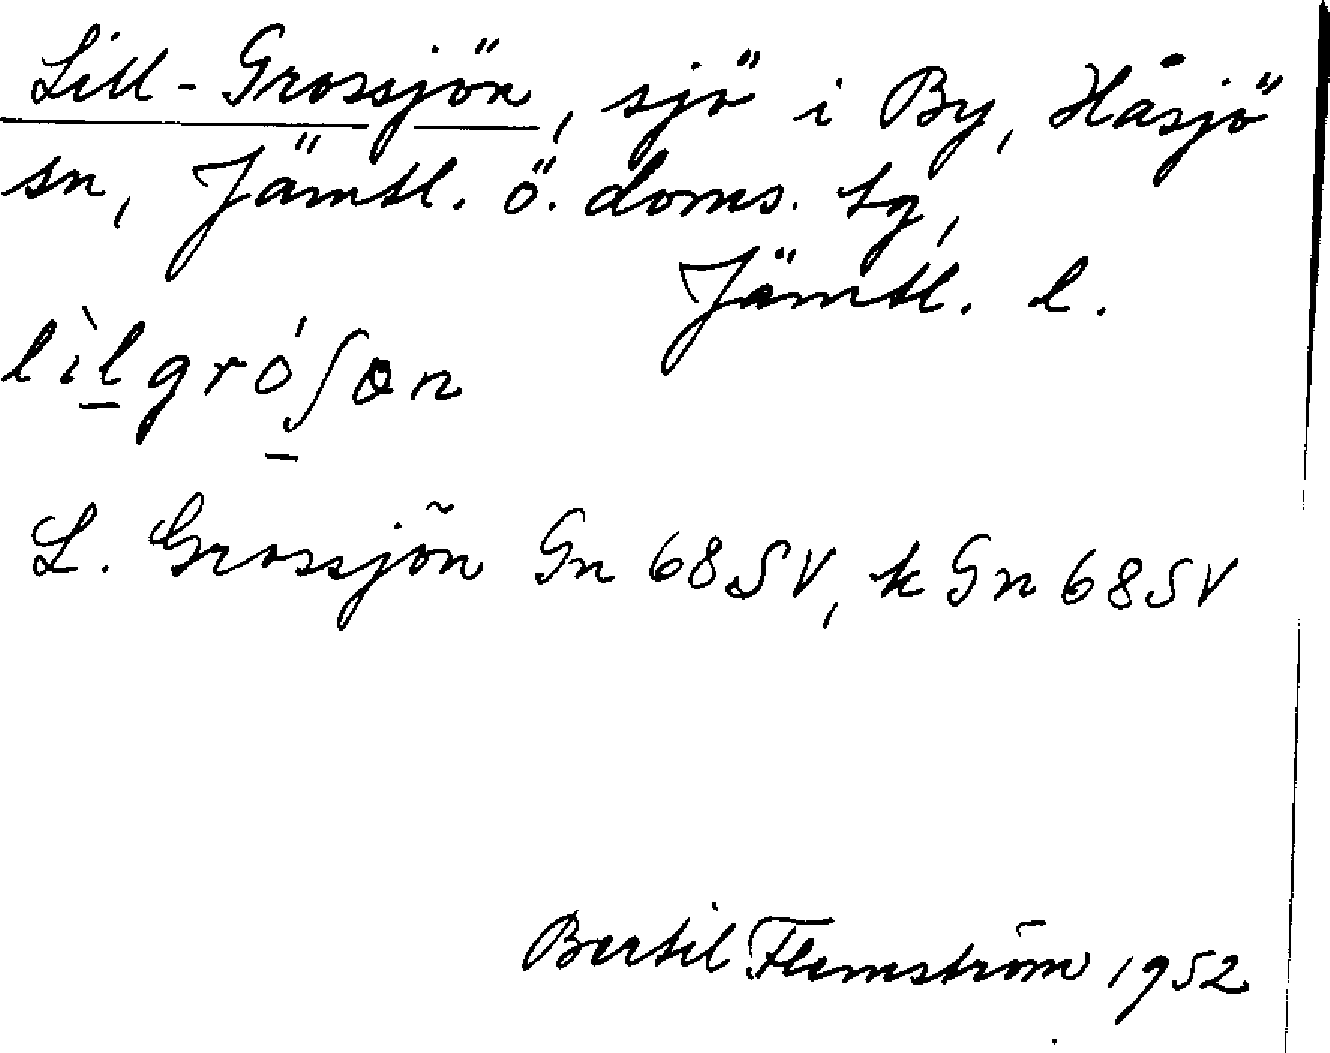 Lill-Grossjön, sjö i By, Håsjö
sn, Jämtl. ö. doms. tg,
Jämtl. l.
lìlgróʃɷn
L. Grossjön Gn 68 SV, k Gn 68 SV
Bertil Flemström 1952